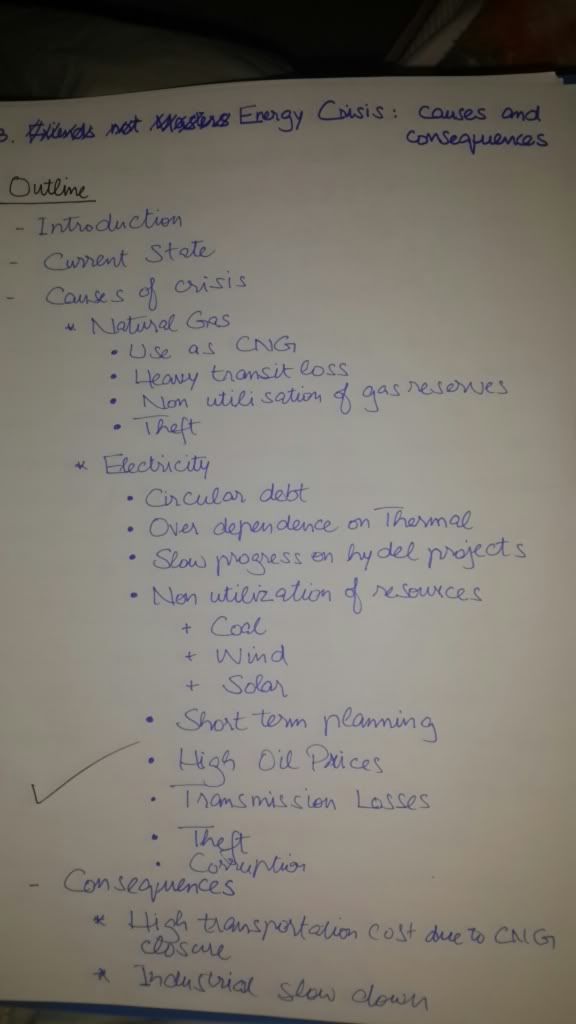 3. Friends not Masters Energy Crisis: causes and
consequences
Outline
- Introduction
- Current State
- Causes of crisis
* Natural Gas
• Use as CNG
• Heavy transit loss
• Non utilisation of gas reserves
• Theft
* Electricity
• Circular debt
• Over dependence on Thermal
• Slow progress on hydel projects
• Non utilization of resources
+ Coal
+ Wind
+ Solar
• Short term planning
• High Oil Prices
• Transmission Losses
• Theft
• Corruption
- Consequences
* High transportation cost due to CNG
closure
* Industrial slow down